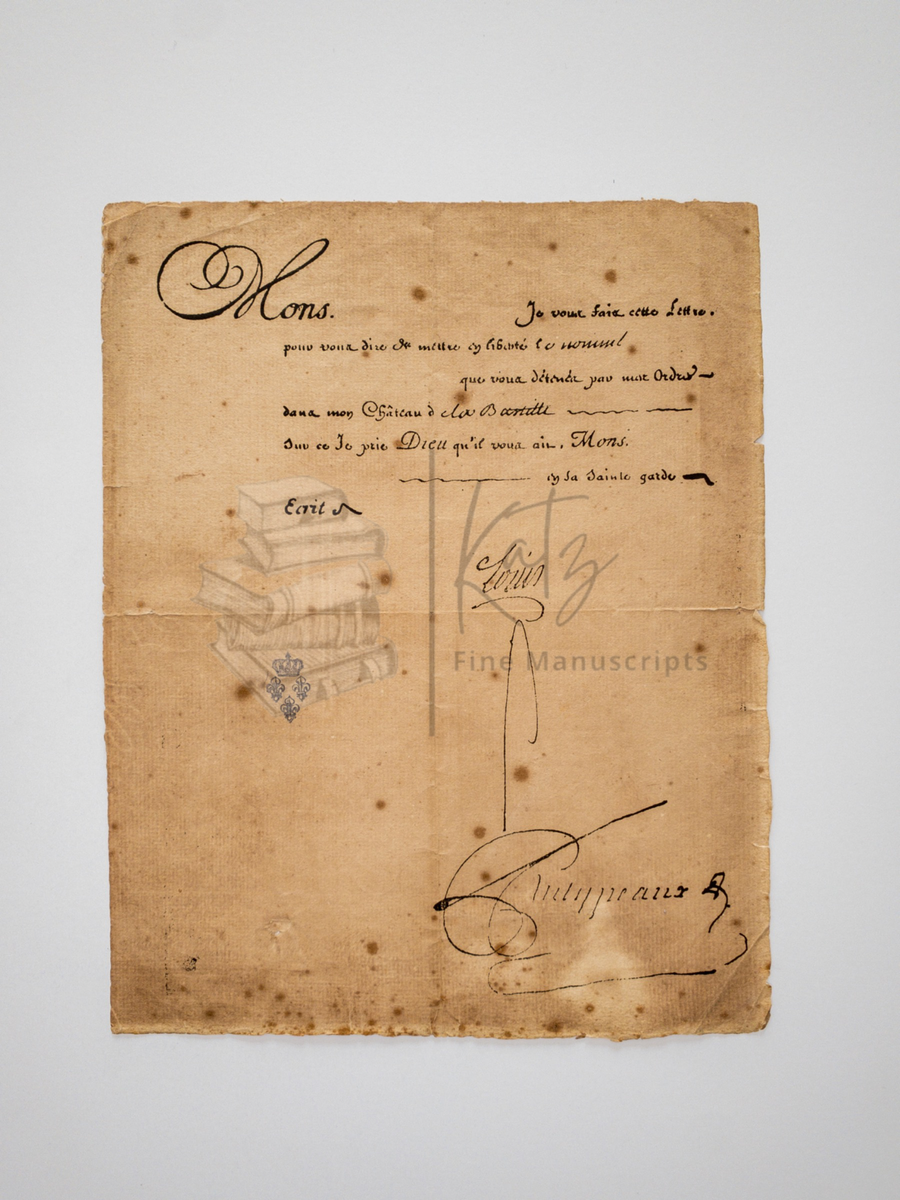 Mons. Je vous fais cette Lettre.
pour vous dire de mettre en liberté le nommé
que vous détenés par mes Ordres
dans mon Château de la Bastille
Sur ce Je prie Dieu qu'il vous ait, Mons.
en sa Sainte garde
Ecrit a
Louis
Phelypeaux
Katz
Fine Manuscripts